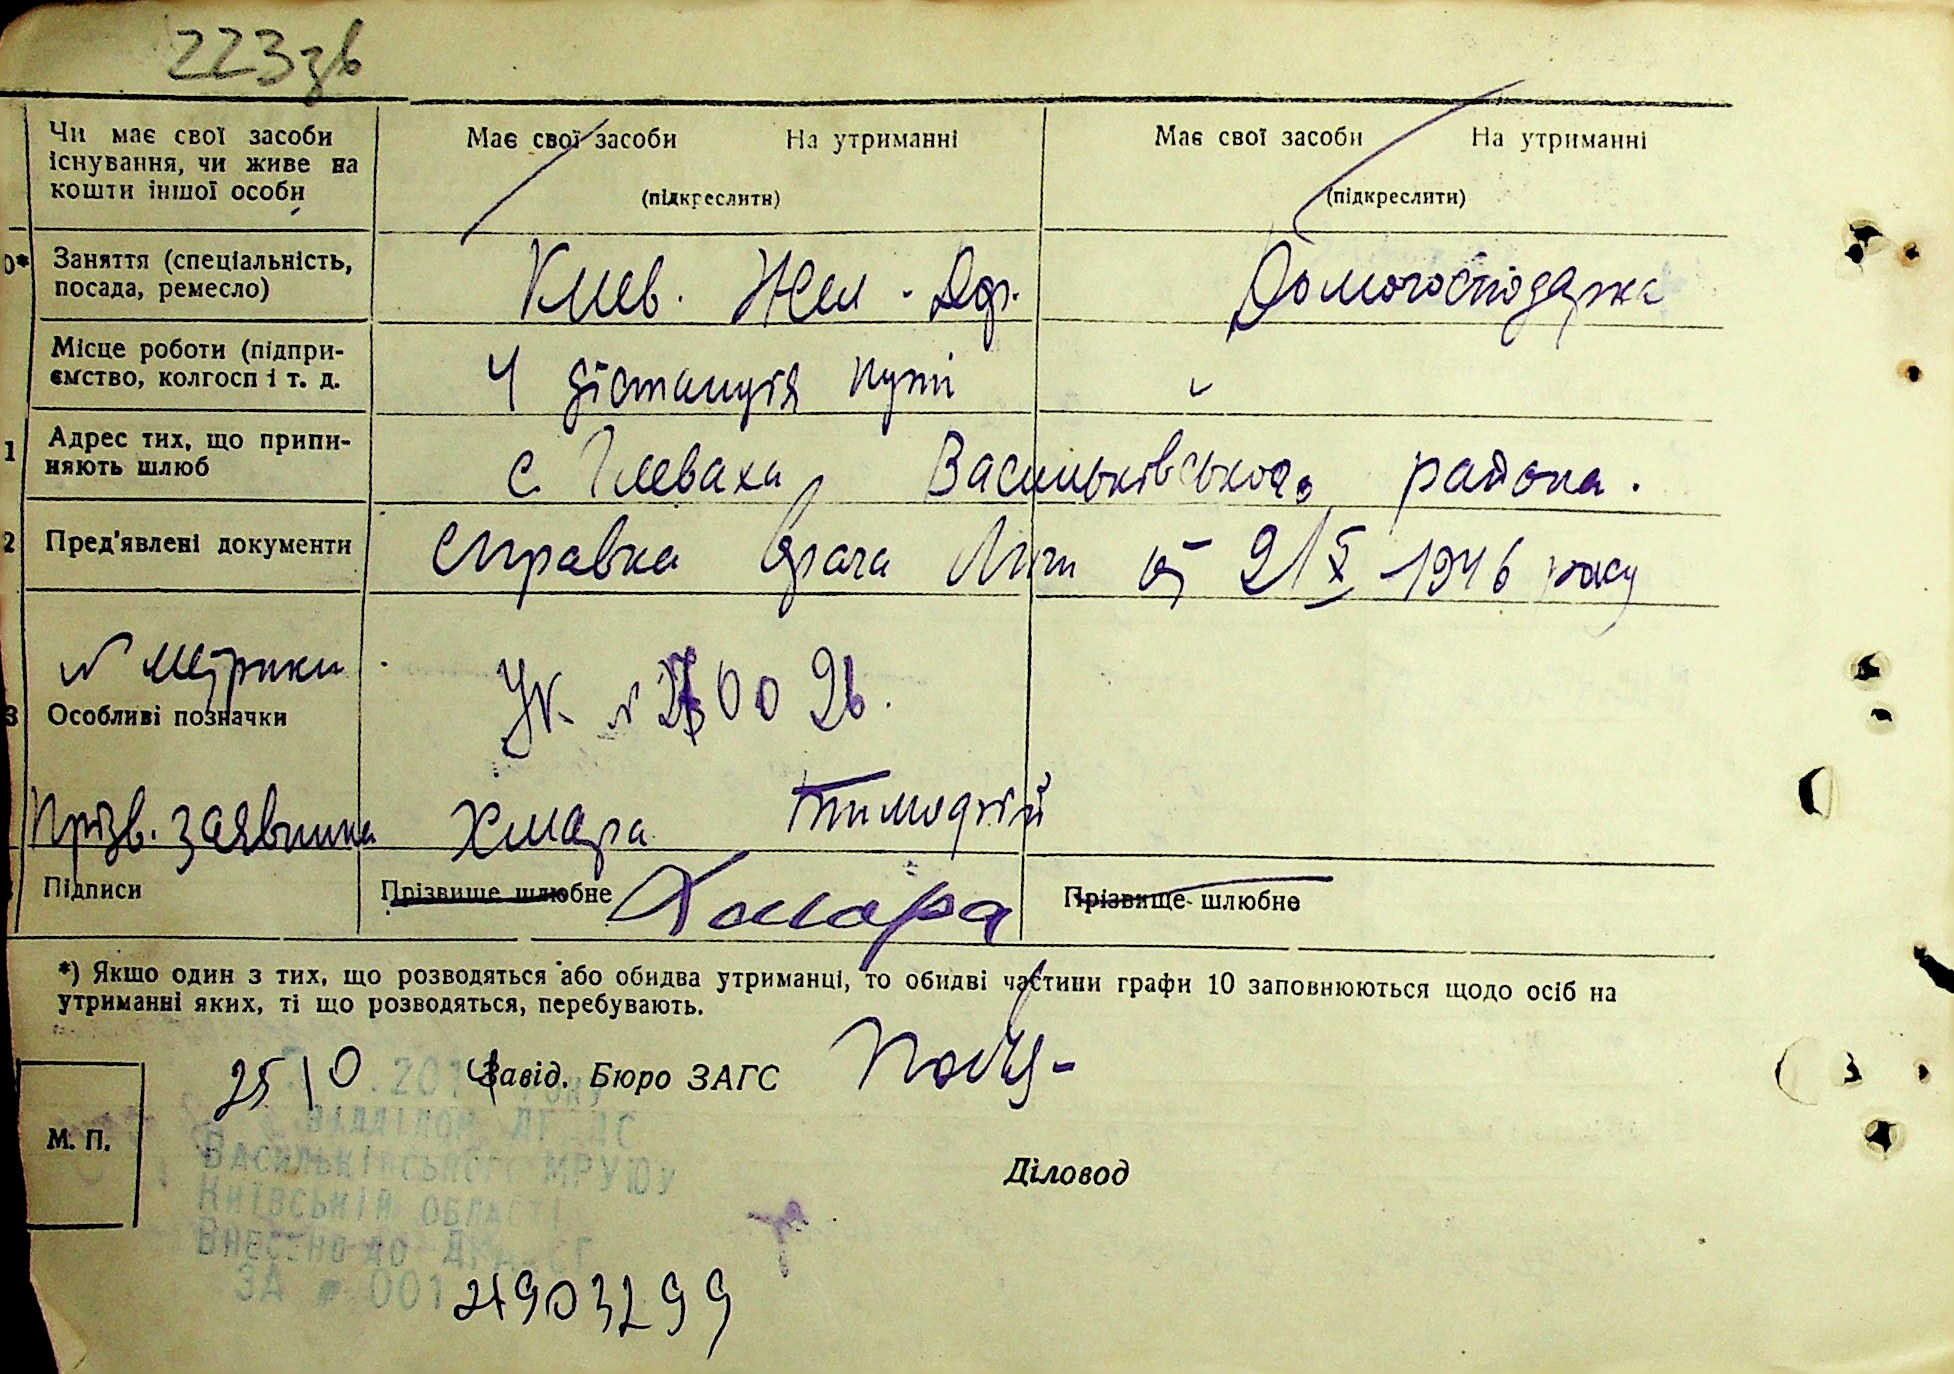 223зв
Чи має свої засоби існування, чи живе на кошти іншої особи
Має свої засоби На утриманні
(підкреслити)
Має свої засоби На утриманні
(підкреслити)
0* Заняття (спеціальність, посада, ремесло)
Киев. Жел. Дор.
Домогосподарка
Місце роботи (підприємство, колгосп і т. д.
4 дістанція путі
1 Адрес тих, що припиняють шлюб
с. Глеваха Васильківського района.
2 Пред'явлені документи
Справка врача від 21/X 1946 року
№ метрики
3 Особливі позначки
УК №
Прізв. заявника Хмара Тимофій
Підписи
Прізвище шлюбне Хмара
Прізвище шлюбне
*) Якщо один з тих, що розводяться або обидва утриманці, то обидві частини графи 10 заповнюються щодо осіб на
утриманні яких, ті що розводяться, перебувають.
25/0 Завід. Бюро ЗАГС
М. П.
Діловод
року
відділом ДРАЦС
Васильківського МРУЮУ
Київській області
Внесено до ДРАЦСГ
за № 001 24903299